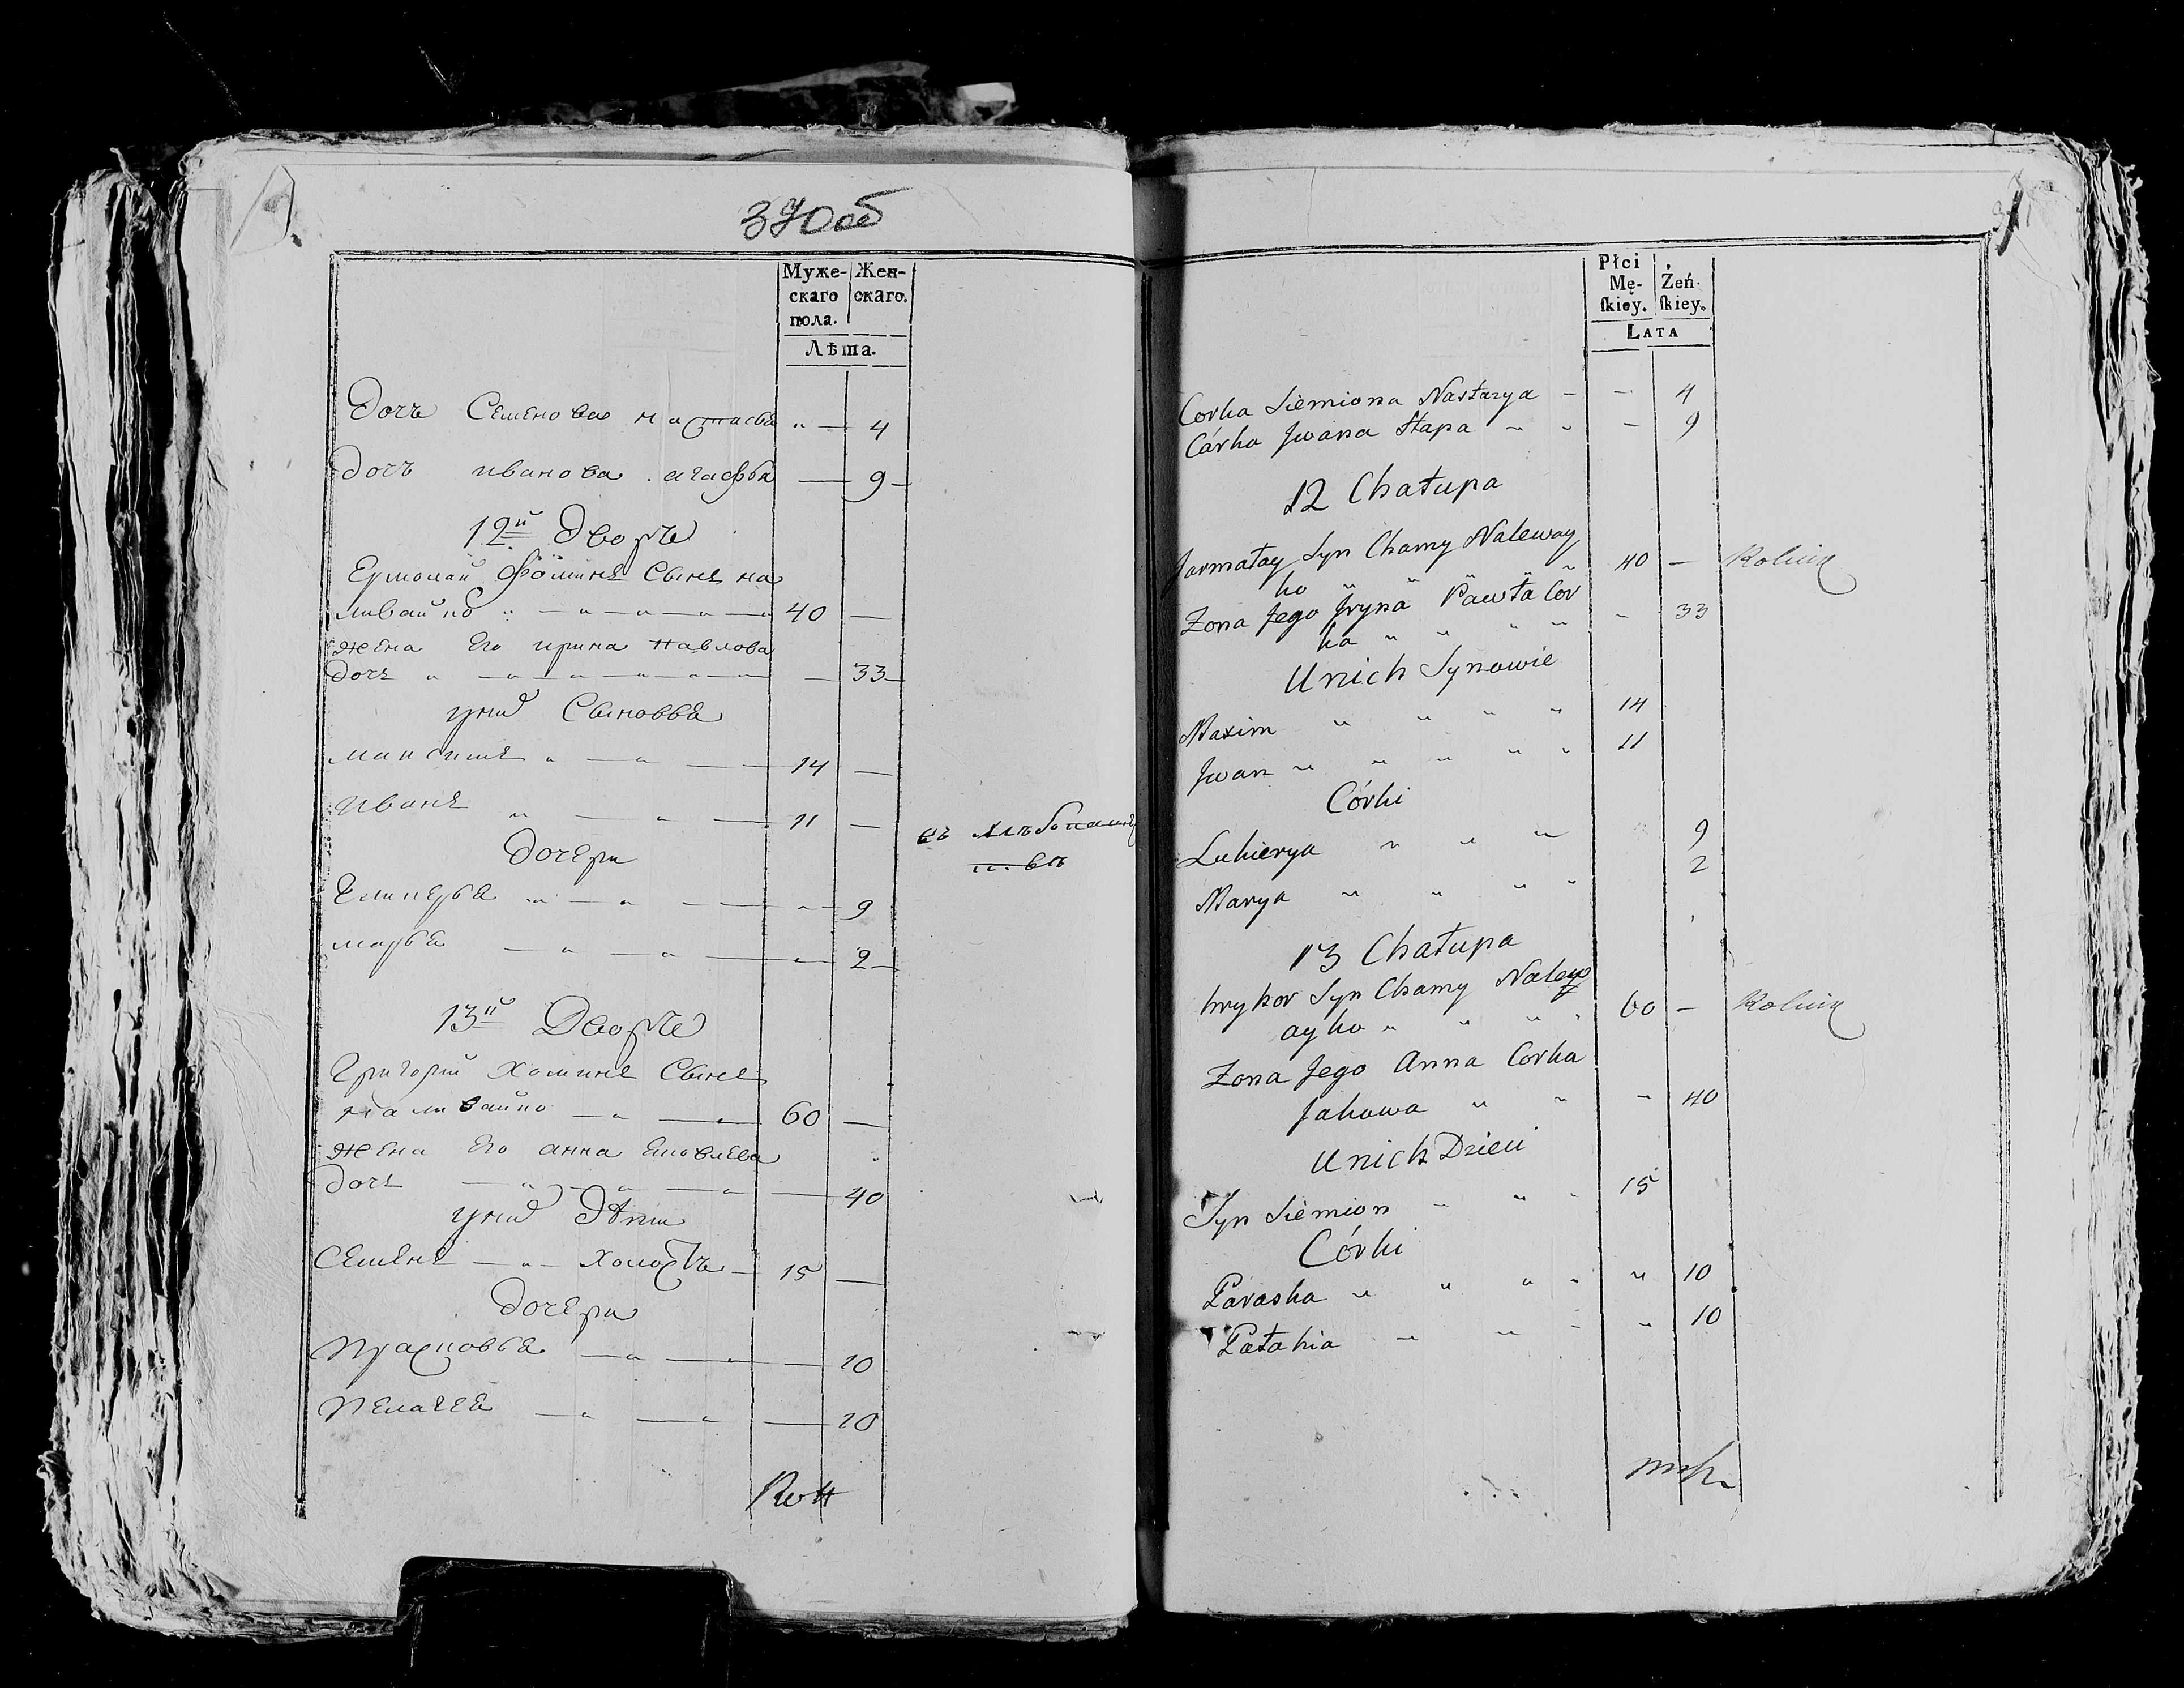 370об
Муже-
скаго
пола.
Жен-
скаго.
Лѣта.
Дочь Семенова настасья " — 4
Дочь иванова агафья — 9
12й Дворъ
Ермолай Фоминъ Сынъ на
ливайко 40 —
жена Его ирина павлова
дочь — 33
унихъ Сыновья
максимъ 14 —
Иванъ 11 —
дочери
Гликерья 9
марья 2
13й Дворъ
Григорій Хоминъ Сынъ
Наливайко 60 —
жена Его анна Яковлева
дочь — 40
унихъ дѣти
Семенъ — " — холостъ — 15 —
дочери
Прасковья 10
Пелагея 10
въ хлебопаше
Płci
Mę-
ſkiey.
Żeń-
ſkiey.
LATA
Corka Siemiona Nastazya — — 4
Córka Jwana Hapa — 9
12 Chałupa
Jarmałay Syn Chamy Naleway
ko 40 — Rolnik
Zona Jego Jryna Pawła Cor
ka - 33
Unich Synowie
Maxim 14
Jwan 11
Córki
Lukierya 9
Marya 2
13 Chałupa
hryhor Syn Chamy Nalew
ayko 60 — Rolnik
Zona Jego Anna Corka
Jakowa - 40
Unich Dzieci
Syn Siemion 15
Córki
Paraska " 10
Pałahia " 10